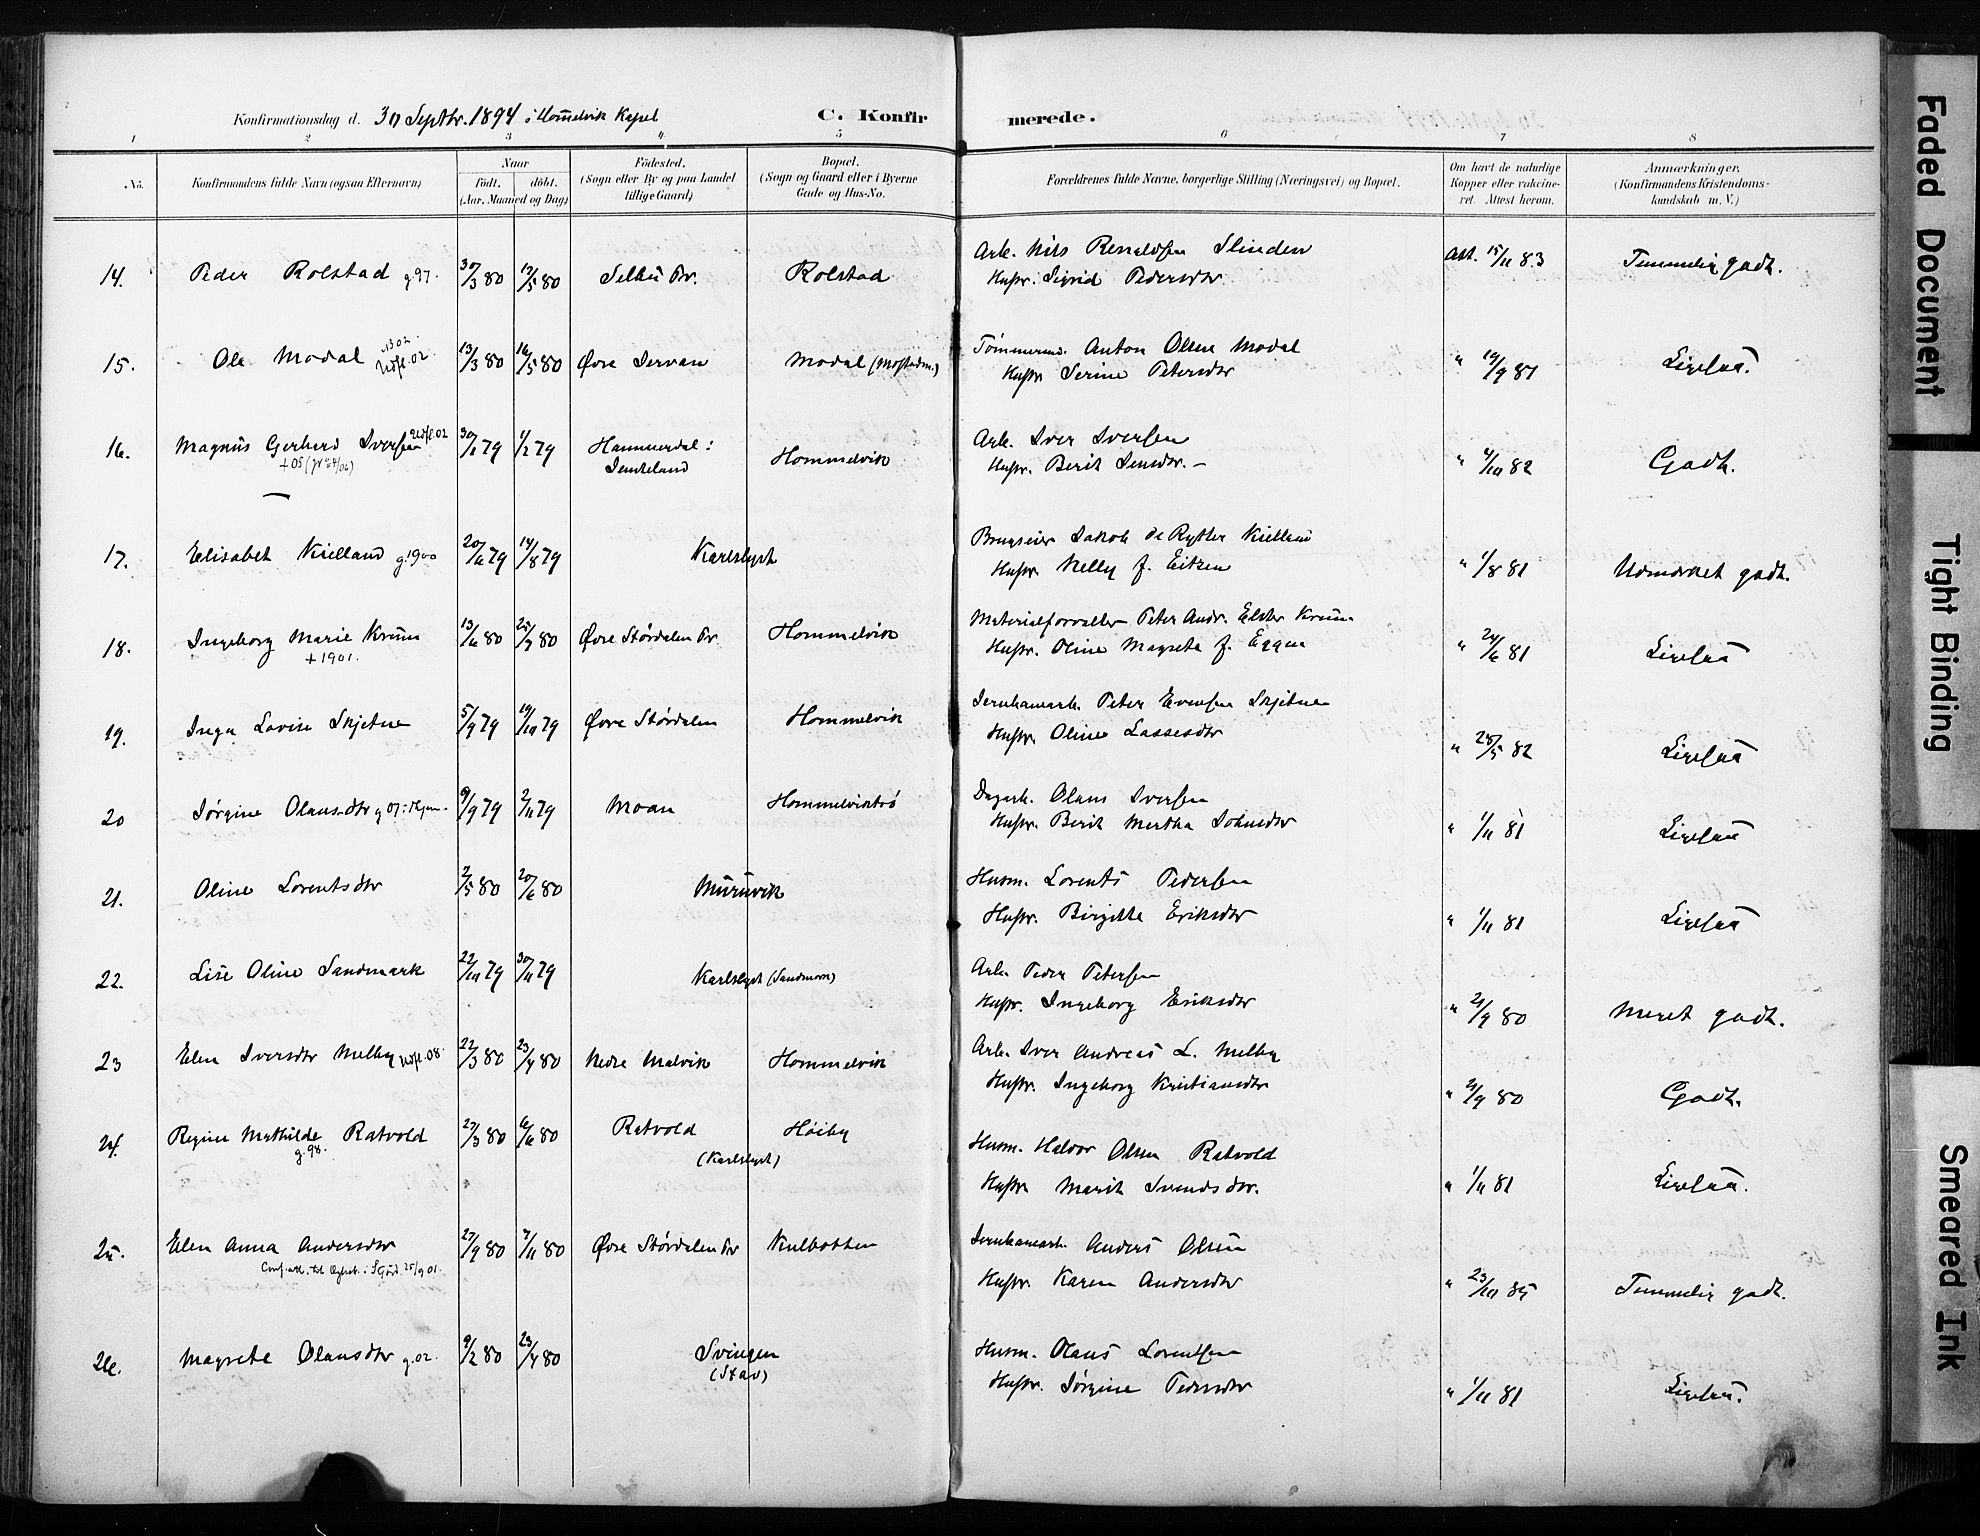 Konfirmationsdag d. 30 Septbr. 1894 i Hommelvik Kapel C. Konfirmerede.
1 2 3 4 5 6 7 8
No. Konfirmandens fulde Navn (ogsaa Efternavn) Naar født. døbt. (Aar, Maaned og Dag) Fødested. (Sogn eller By og paa Landet tillige Gaard) Bopæl. (Sogn og Gaard eller i Byerne Gade og Hus-No. Forældrenes fulde Navne, borgerlige Stilling (Næringsvei) og Bopæl. Om havt de naturlige Kopper eller vakcineret. Attest herom. Anmærkninger. (Konfirmandens Kristendomskundskab m. V.)
14. Peder Rolstad g 97. 30/3 80 17/5 80 Selbu Pr. Rolstad Arb. Nils Slinden Att. 15/11 83 Temmelig godt.
Hustr. Sigrid Pedersdtr
15. Ole Modal Udfl. 02. 13/3 80 16/5 80 Øvre Modal (Mostadm.) Anton Olsen Modal
Hustr Serine Petersdtr " 19/9 81 Ligesaa.
16. Magnus Gerhard Iversen Udfl. 02 30/1 79 1/2 79 Hammerdal: Arb. Iver Iversen
Hommelvik Hustr. Berit " 4/10 82 Godt.
17. Elisabet Kielland g. 1900 20/6 79 14/8 79 Karlslyst Brugseier Jakob de Rytter Kielland
Hustr. Nelly f. Eitzen " 1/8 81 Udmærket godt.
18. Ingeborg Marie Krum 13/6 80 25/7 80 Øvre Størdalen Pr Hommelvik Materialforvalter Peter Andr. Elster Krum
+ 1901. Hustr. Oline Magreta f. Eggen " 24/6 81 Ligesaa
19. Inga Lovise Skjetne 5/9 79 19/10 79 Øvre Størdalen Hommelvik Peter Evensen Skjetne
Hustr. Oline Lassesdtr " 28/5 82 Ligesaa
20 Jørgine Olausdtr 9/9 79 2/11 79 Moan Hommelviktrø Dagarb. Olaus Iversen
Hustr. Berit Martha Johnsdtr " 1/11 81 Ligesaa
21. Oline Lorentsdtr 2/5 80 20/6 80 Muruvik Husm. Lorents Pedersen
Hustr. Birgitte Eriksdtr " 1/11 81 Ligesaa
22. Lise Oline Sandmark 22/10 79 30/11 79 Karlslyst (Sandmark) Arb. Peder Petersen
Hustr. Ingeborg Eriksdtr " 21/9 80 Meget godt.
23 Elen Iversdtr Melby Udfl. 08. 22/3 80 23/4 80 Nedre Malvik Hommelvik Arb. Iver Andreas L. Melby
Hustr. Ingeborg Kristiansdtr " 21/9 80 Godt.
24. Regine Mathilde Ratvold 27/3 80 6/6 80 Ratvold Høiby Husm. Halvor Olsen Ratvold
g. 98. (Karlslyst) Hustr Marit Svendsdtr. " 1/11 81 Ligesaa.
25. Elen Anna Andersdtr 27/9 80 7/11 80 Øvre Størdalen Pr Kulbotten Anders Olsen
Hustr. Karen Andersdtr " 23/10 85 Temmelig godt.
26. Magrete Olausdtr g. 02. 9/2 80 23/4 80 Svingen Husm. Olaus Lorentsen
(Stav) Hustr. Jørgine Pedersdtr " 1/11 81 Ligesaa.
Faded Document
Tight Binding
Smeared Ink